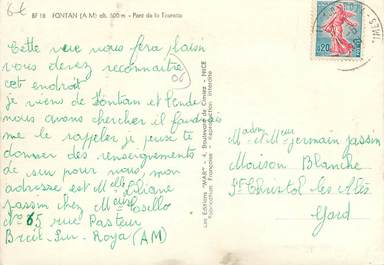 6€
BF 18 FONTAN (A M) alt. 500 m - Pont de la Tourette
Cette vue nous fera plaisir
vous devez reconnaitre
cet endroit
06
je viens de Fontan et Tende
nous avons chercher il faudrait
me le rappeler je peux te
donner des renseignements
de sur pour nous, mon
adresse est Melle Liliane
Jassin chez Meur Casello
No 65 rue Pasteur
Breil-Sur-Roya (AM)
Les Editions "MAR" - 4, Boulevard de Cimiez - NICE
Fabrication Française - Reproduction interdite
0,20
Madam et Meur Germain Jassin
Maison Blanche
St Christol les Alès
Gard